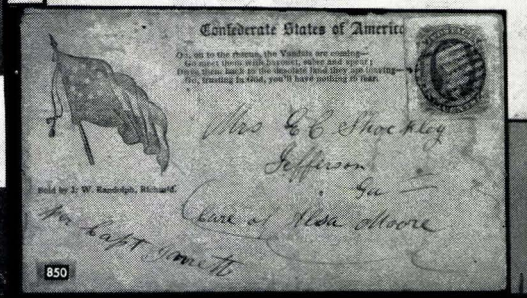 Confederate States of America
On, on to the rescue, the Vandals are coming—
Go meet them with bayonet, sabre and spear;
Drive them back to the desolate land they are leaving—
Go, trusting in God, you'll have nothing to fear.
Mrs E C Shockley
Jefferson
Ga
Care of Alsa Moore
Sold by J. W. Randolph, Richm'd.
per Capt Jarrett
850